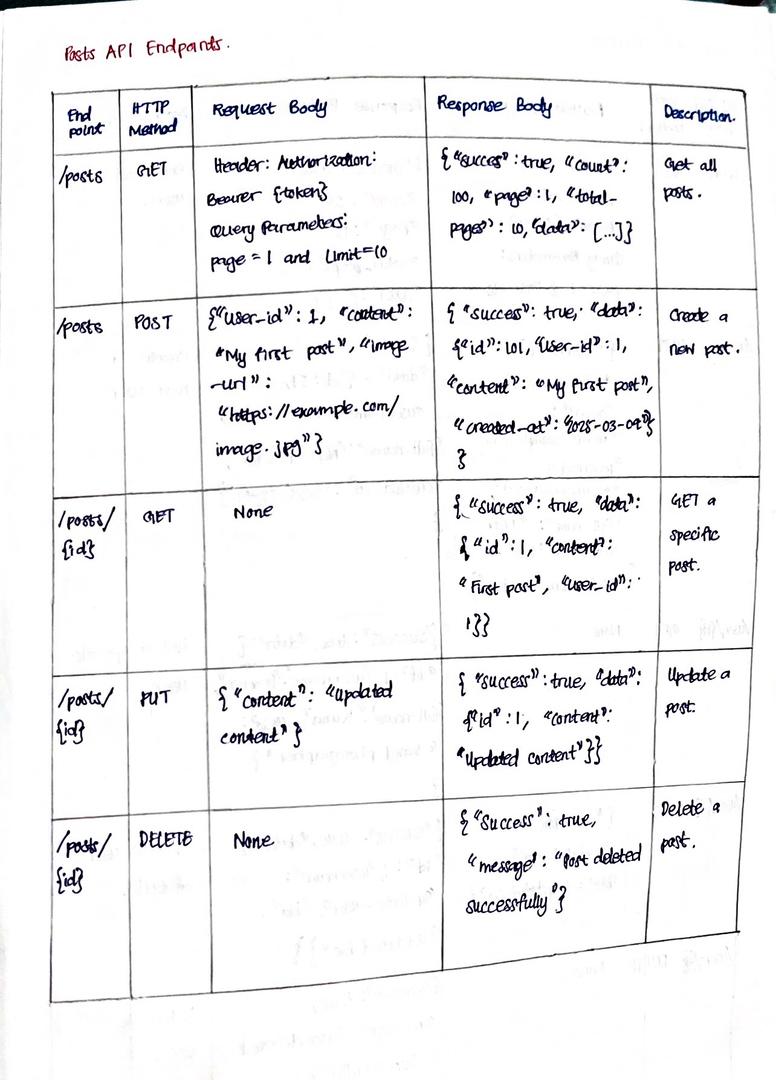 Posts API Endpoints.
End point
HTTP Method
Request Body
Response Body
Description.
/posts
GET
Header: Authorization:
Bearer {token}
Query Parameters:
page = 1 and Limit=10
{"succes": true, "count":
100, "page": 1, "total-
pages": 10, "data": [...]}
Get all
posts.
/posts
POST
{"user-id": 1, "content":
"My first post", "image
-url":
"https://example.com/
image.jpg"}
{ "success": true, "data":
{"id": 101, "user-id": 1,
"content": "My first post",
"created-at": "2025-03-09"}
}
Create a
new post.
/posts/
{id}
GET
None
{ "success": true, "data":
{ "id": 1, "content":
"First post", "user-id":
1}}
GET a
specific
post.
/posts/
{id}
PUT
{ "content": "updated
content" }
{ "success": true, "data":
{"id": 1, "content":
"Updated content"}}
Update a
post.
/posts/
{id}
DELETE
None
{ "success": true,
"message": "Post deleted
successfully"}
Delete a
post.